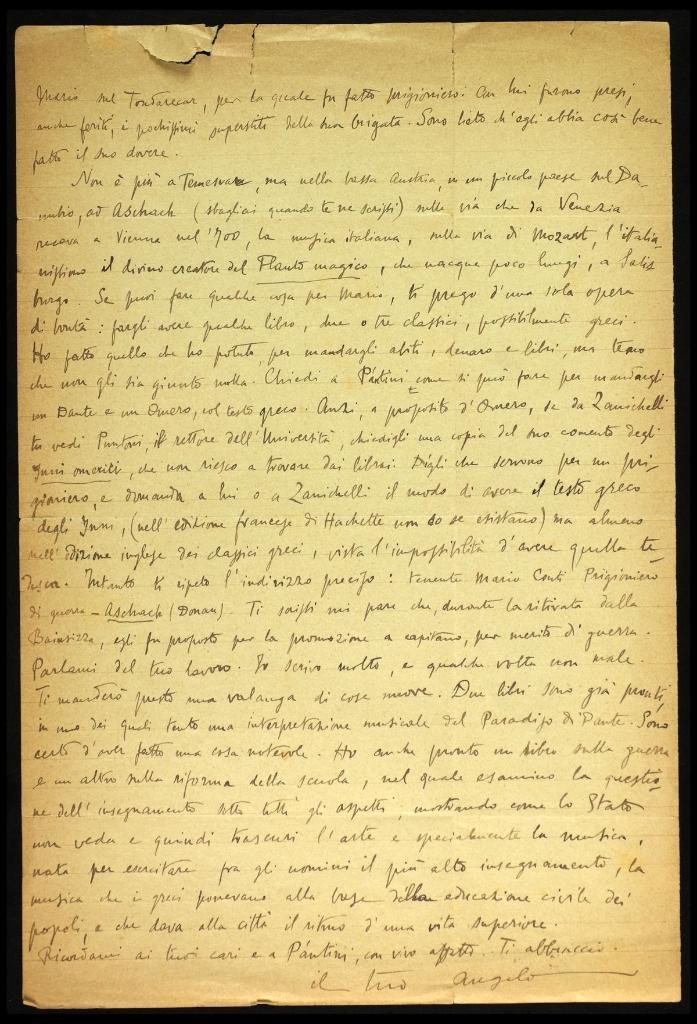 Mario sul Tondarecar, per la quale fu fatto prigioniero. Con lui furono presi,
anche feriti, i pochissimi superstiti della sua brigata. Sono lieto ch'egli abbia così bene
fatto il suo dovere.
Non è più a Temesvar, ma nella bassa Austria, in un piccolo paese sul Da-
nubio, ad Aschach (sbagliai quando te ne scrissi) sulla via che da Venezia
recava a Vienna nel '700, la musica italiana, sulla via di Mozart, l'italia-
nissimo il divino creatore del Flauto magico, che nacque poco lungi, a Salis
burgo. Se puoi fare qualche cosa per Mario, ti prego d'una sola opera
di bontà: fargli avere qualche libro, due o tre classici, possibilmente greci.
Ho fatto quello che ho potuto, per mandargli abiti, denaro e libri, ma temo
che non gli sia giunto nulla. Chiedi a Pántini come si può fare per mandargli
un Dante e un Omero, col testo greco. Anzi, a proposito d'Omero, se da Zanichelli
tu vedi Puntoni, il rettore dell'Università, chiedigli una copia del suo comento degli
Inni omerici, che non riesco a trovare dai librai. Digli che servono per un pri-
gioniero, e domanda a lui o a Zanichelli il modo di avere il testo greco
degli Inni, (nell'edizione francese di Hachette non so se esistano) ma almeno
nell'edizione inglese dei classici greci, vista l'impossibilità d'avere quella te-
desca. Intanto ti ripeto l'indirizzo preciso: tenente Mario Conti Prigioniero
di guerra - Aschach (Donau). Ti scrissi mi pare che, durante la ritirata dalla
Bainsizza, egli fu proposto per la promozione a capitano, per merito di guerra.
Parlami del tuo lavoro. Io scrivo molto, e qualche volta non male.
Ti manderò presto una valanga di cose nuove. Due libri sono già pronti,
in uno dei quali tento una interpretazione musicale del Paradiso di Dante. Sono
certo d'aver fatto una cosa notevole. Ho anche pronto un libro sulla guerra
e un altro sulla riforma della scuola, nel quale esamino la questio-
ne dell'insegnamento sotto tutti gli aspetti, mostrando come lo Stato
non veda e quindi trascuri l'arte e specialmente la musica,
nata per esercitare fra gli uomini il più alto insegnamento, la
musica che i greci ponevano alla base della educazione civile dei
popoli, e che dava alla città il ritmo d'una vita superiore.
Ricordami ai tuoi cari e a Pántini, con vivo affetto. Ti abbraccio.
il tuo Angelo